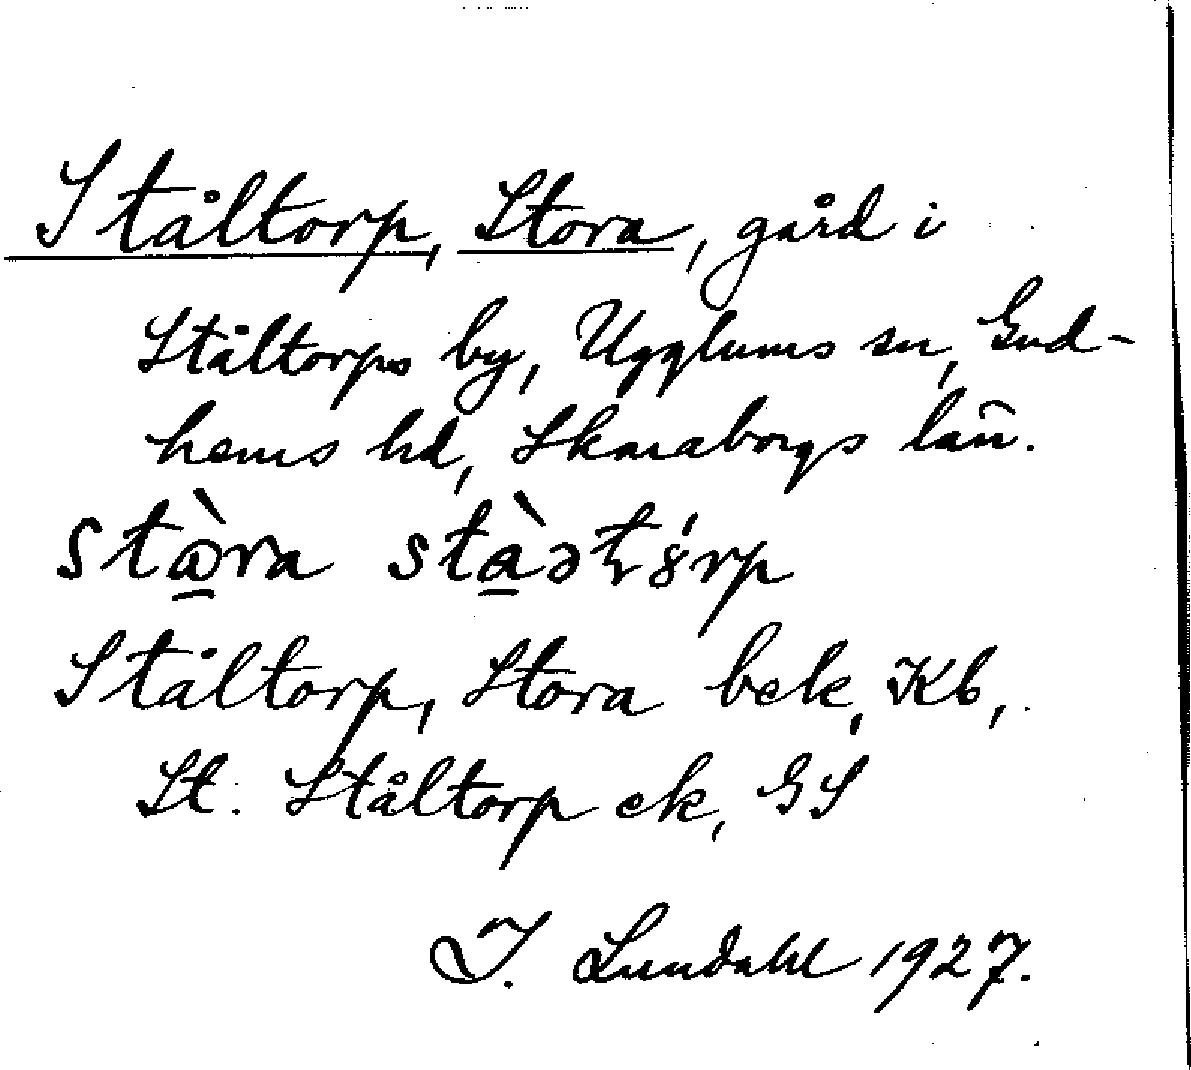 Ståltorp, Stora, gård i
Ståltorps by, Ugglums sn, Gud-
hems hd, Skaraborgs län.
Ståltorp, Stora bek, Kb,
St. Ståltorp ek, GS
I. Lundahl 1927.